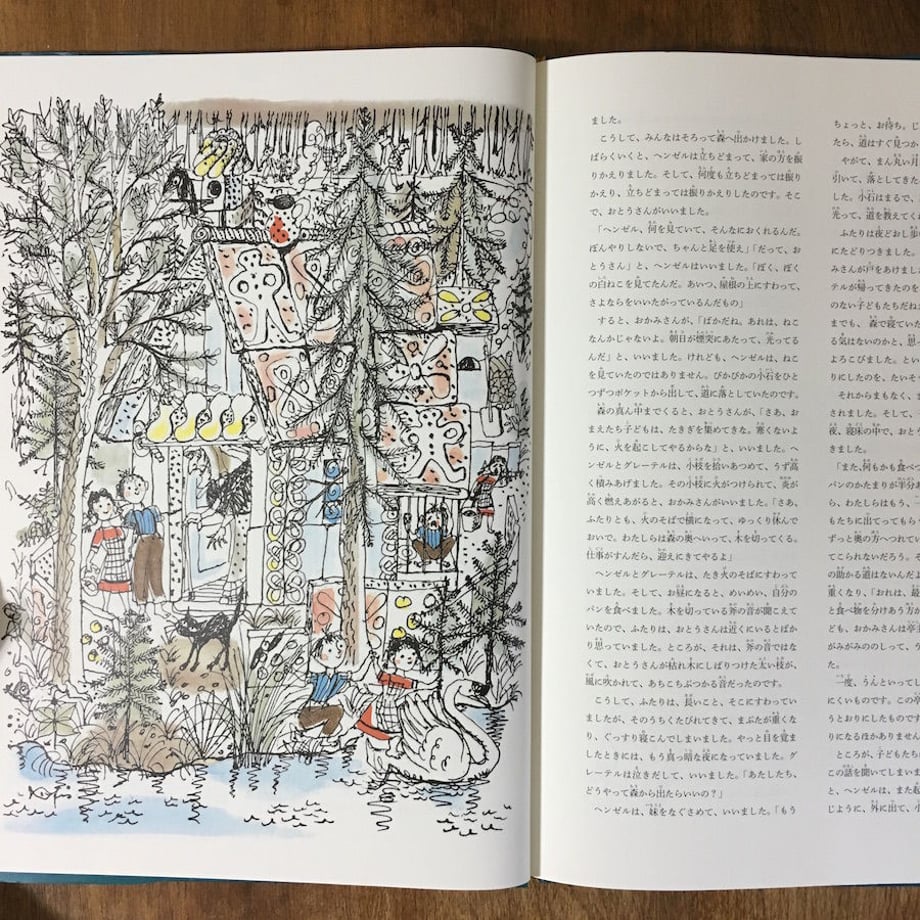 ました。
こうして、みんなはそろって森へ出かけました。し
ばらくいくと、ヘンゼルは立ちどまって、家の方を振
りかえりました。そして、何度も立ちどまっては振り
かえり、立ちどまっては振りかえりしたのです。そこ
で、おとうさんがいいました。
「ヘンゼル、何を見ていて、そんなにおくれるんだ。
ぼんやりしないで、ちゃんと足を使え」「だって、お
とうさん」と、ヘンゼルはいいました。「ぼく、ぼく
の白ねこを見てたんだ。あいつ、屋根の上にすわって、
さよならをいいたがっているんだもの」
すると、おかみさんが、「ばかだね。あれは、ねこ
なんかじゃないよ。朝日が煙突にあたって、光ってる
んだ」と、いいました。けれども、ヘンゼルは、ねこ
を見ていたのではありません。ぴかぴかの小石をひと
つずつポケットから出して、道に落としていたのです。
森の真ん中までくると、おとうさんが、「さあ、お
まえたち子どもは、たきぎを集めてきな。寒くないよ
うに、火を起こしてやるからな」と、いいました。ヘ
ンゼルとグレーテルは、小枝を拾いあつめて、うず高
く積みあげました。その小枝に火がつけられて、炎が
高く燃えあがると、おかみさんがいいました。「さあ、
ふたりとも、火のそばで横になって、ゆっくり休んで
おいで。わたしらは森の奥へいって、木を切ってくる。
仕事がすんだら、迎えにきてやるよ」
ヘンゼルとグレーテルは、たき火のそばにすわって
いました。そして、お昼になると、めいめい、自分の
パンを食べました。木を切っている斧の音が聞こえて
いたので、ふたりは、おとうさんは近くにいるとばか
り思っていました。ところが、それは、斧の音ではな
くて、おとうさんが枯れ木にしばりつけた太い枝が、
風に吹かれて、あちこちぶつかる音だったのです。
こうして、ふたりは、長いこと、そこにすわってい
ましたが、そのうちくたびれてきて、まぶたが重くな
り、ぐっすり寝こんでしまいました。やっと目を覚ま
したときには、もう真っ暗な夜になっていました。グ
レーテルは泣きだして、いいました。「あたしたち、
どうやって森から出たらいいの？」
ヘンゼルは、妹をなぐさめて、いいました。「もう
ちょっと、お待ち。じ
たら、道はすぐ見つか
やがて、まん丸い月
引いて、落としてきた
した。小石はまるで、
光って、道を教えてく
ふたりは夜どおし歩
にたどりつきました。
みさんが戸をあけまし
テルが帰ってきたのを
のない子どもたちだね
までも、森で寝ていた
る気はないのかと、思っ
よろこびました。とい
りにしたのを、たいそ
それからまもなく、ま
されました。そして、
夜、寝床の中で、おとう
きました。
「また、何もかも食べ
パンのかたまりが半分あ
ら、わたしらはもう、
もたちに出てってもら
ずっと奥の方へつれてい
てこられないだろう。
の助かる道はないんだよ
重くなり、「おれは、最
と食べ物を分けあう方が
ども、おかみさんは亭主
がみがみののしって、う
た。
一度、うんといってし
にくいものです。この亭
うとおりにしたものです
りになるほかありません
ところが、子どもたち
この話を聞いてしまい
と、ヘンゼルは、また起
じように、外に出て、小